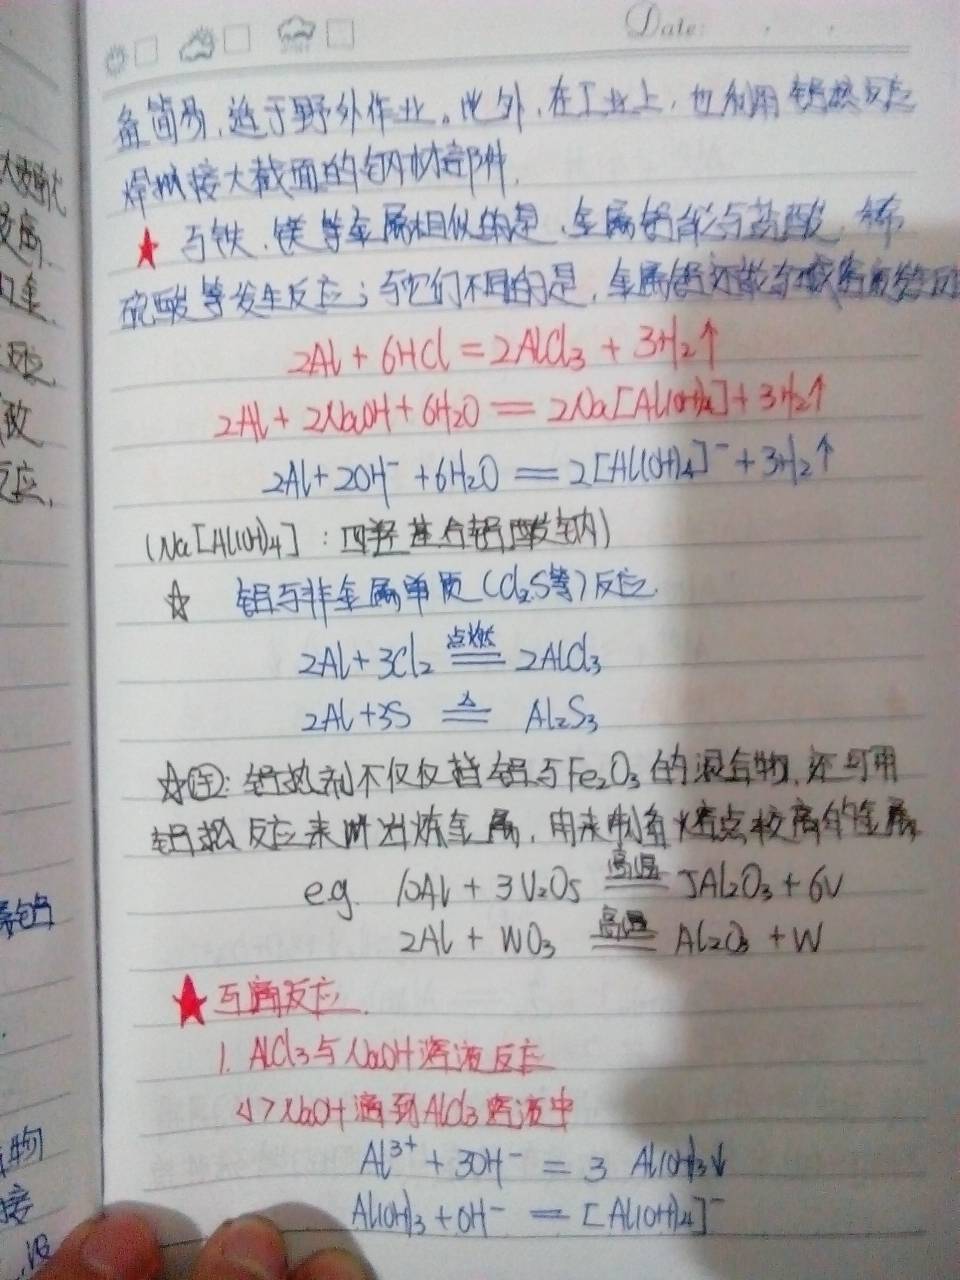 Date:
备简易,适于野外作业。此外,在工业上,也利用铝热反应
焊接大截面的钢材部件.
★ 与铁、镁等金属相似的是,金属铝能与盐酸、稀
硫酸等发生反应;与它们不同的是,金属铝还能与
2Al + 6HCl = 2AlCl₃ + 3H₂↑
2Al + 2NaOH + 6H₂O == 2Na[Al(OH)₄] + 3H₂↑
2Al + 2OH⁻ + 6H₂O == 2[Al(OH)₄]⁻ + 3H₂↑
(Na[Al(OH)₄]:四羟基合铝酸钠)
☆ 铝与非金属单质(Cl₂.S等)反应.
2Al + 3Cl₂ 点燃== 2AlCl₃
2Al + 3S △== Al₂S₃
☆注:铝热剂不仅仅指铝与Fe₂O₃的混合物,还可用
铝热反应来冶炼金属,用来制备熔点较高的金属
e.g. 10Al + 3V₂O₅ 高温== 5Al₂O₃ + 6V
2Al + WO₃ 高温== Al₂O₃ + W
★ 互滴反应.
1. AlCl₃与NaOH溶液反应
<1>NaOH滴到AlCl₃溶液中
Al³⁺ + 3OH⁻ = 3 Al(OH)₃↓
Al(OH)₃ + OH⁻ == [Al(OH)₄]⁻